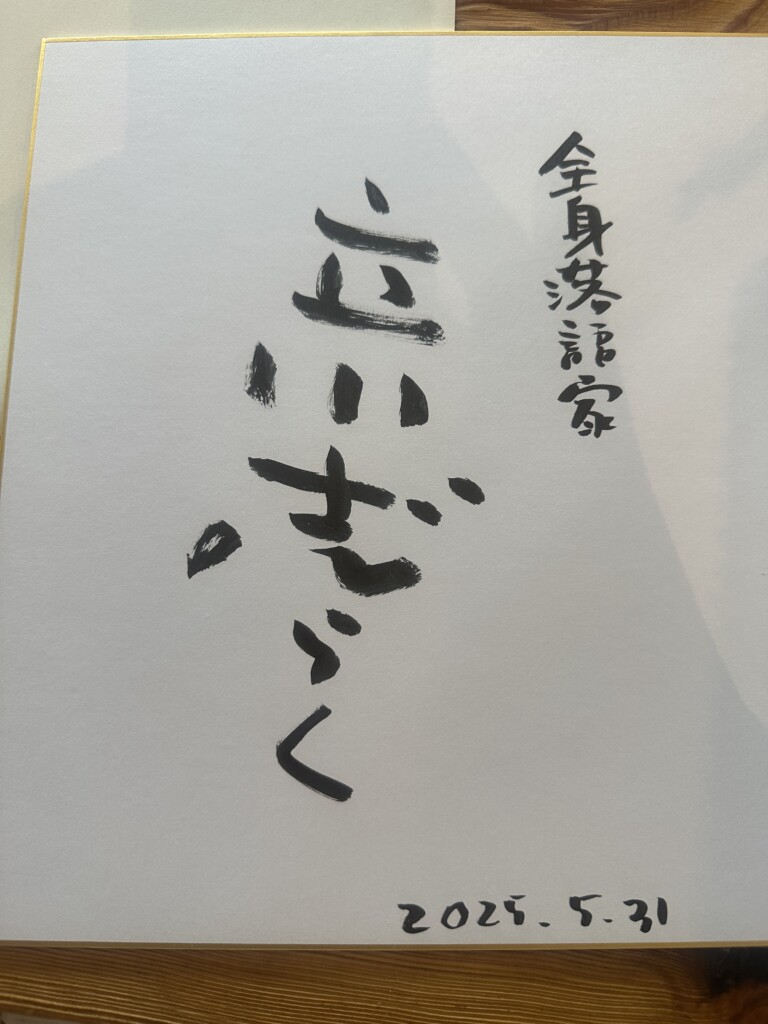 全身落語家
立川志らく
2025.5.31